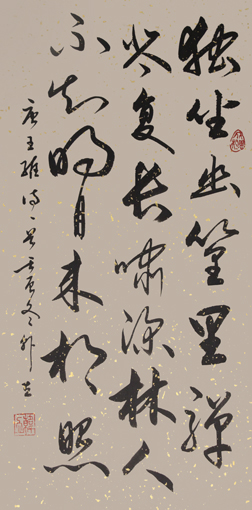 独坐幽篁里弹
琴复长啸深林人
不知明月来相照
唐王维诗一首壬辰冬